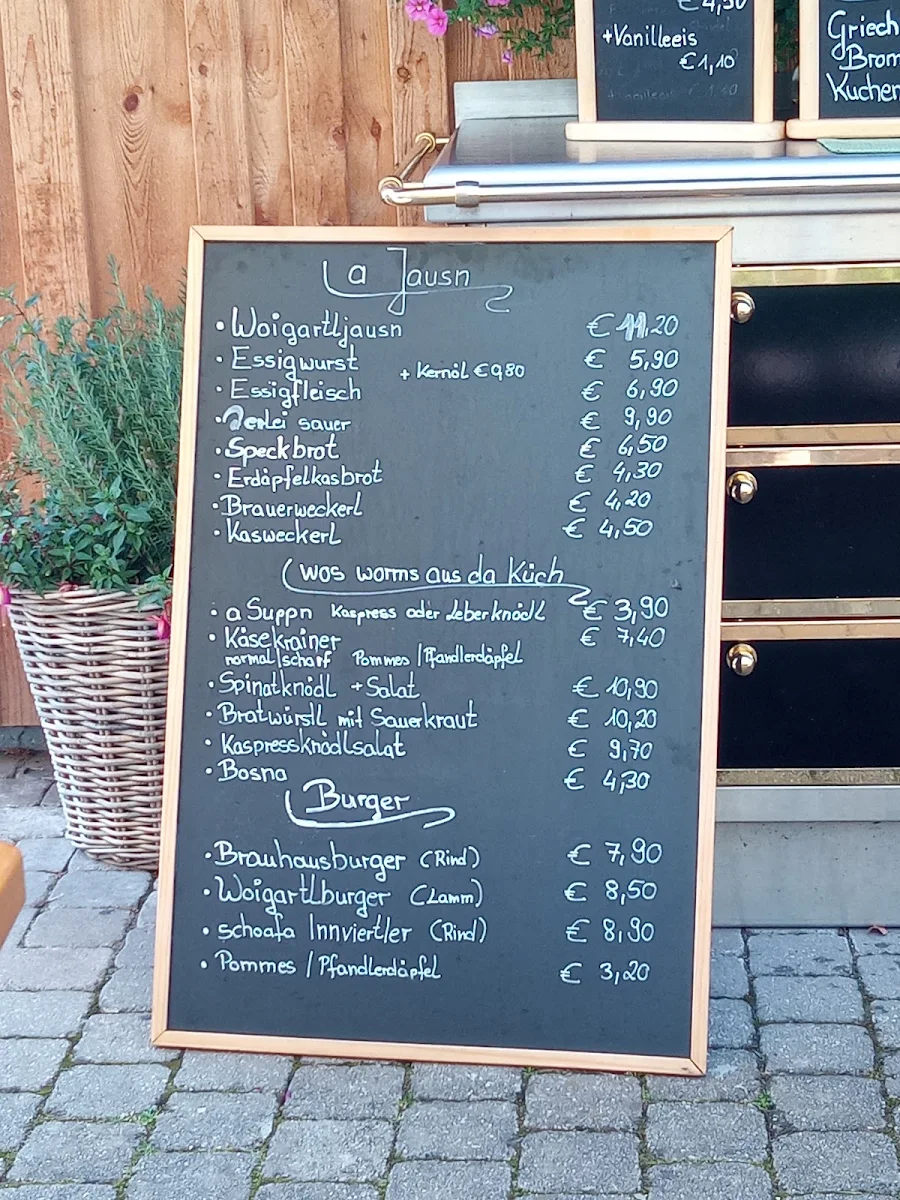 € 4,50
+Vanilleeis
€ 1,10
Griech
Brom
Kuchen
a Jausn
• Woigartljausn € 11,20
• Essigwurst € 5,90
+ Kernöl € 0,80
• Essigfleisch € 6,90
sauer € 9,90
• Speckbrot € 6,50
• Erdäpfelkasbrot € 4,30
• Brauerweckerl € 4,20
• Kasweckerl € 4,50
wos worms aus da Küch
• a Suppn Kaspress oder Leberknödl € 3,90
• Käsekrainer € 7,40
normal/scharf Pommes/Pfandlerdäpfel
• Spinatknödl + Salat € 10,90
• Bratwürstl mit Sauerkraut € 10,20
• Kaspressknödlsalat € 9,70
• Bosna € 4,30
Burger
• Brauhausburger (Rind) € 7,90
• Woigartlburger (Lamm) € 8,50
• schoafa Innviertler (Rind) € 8,90
• Pommes / Pfandlerdäpfel € 3,20